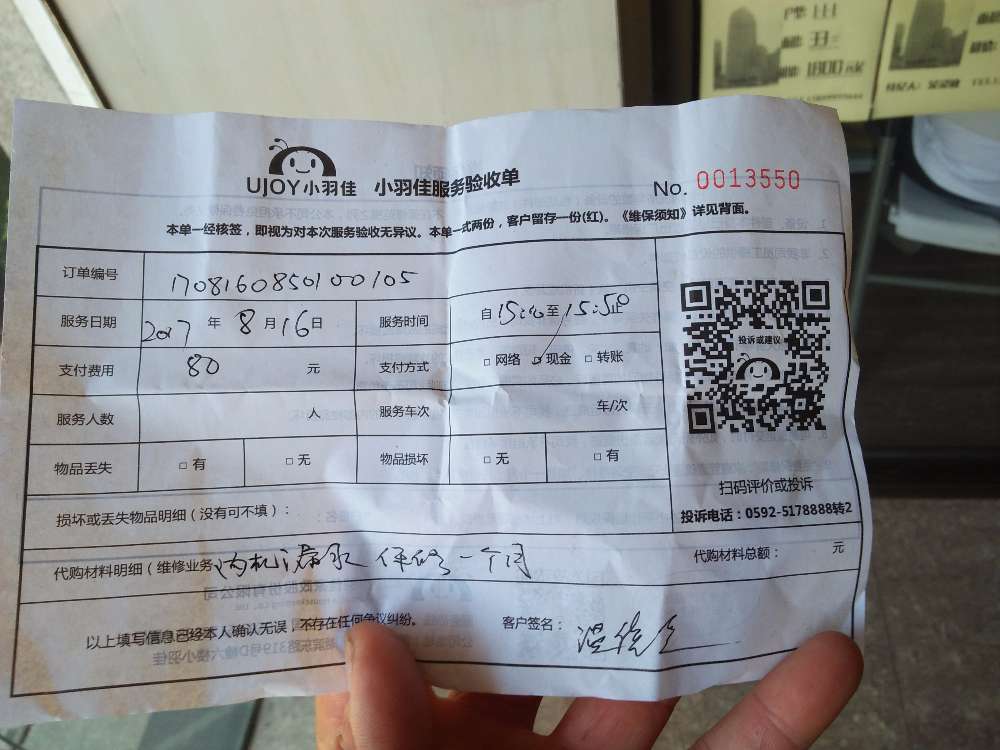 UJOY小羽佳 小羽佳服务验收单
No. 0013550
本单一经核签，即视为对本次服务验收无异议。本单一式两份，客户留存一份(红)。《维保须知》详见背面。
订单编号 1708160850100105
服务日期 2017 年 8 月 16 日 服务时间 自 15:20 至 15:50 止
支付费用 80 元 支付方式 □ 网络 □ 现金 □ 转账
服务人数 人 服务车次 车/次
物品丢失 □ 有 □ 无 物品损坏 □ 无 □ 有
投诉或建议
扫码评价或投诉
投诉电话：0592-5178888转2
损坏或丢失物品明细（没有可不填）：
代购材料明细（维修业务 内机漏水 保修一个月
代购材料总额： 元
以上填写信息已经本人确认无误，不存在任何争议纠纷。
客户签名：
1800元/米